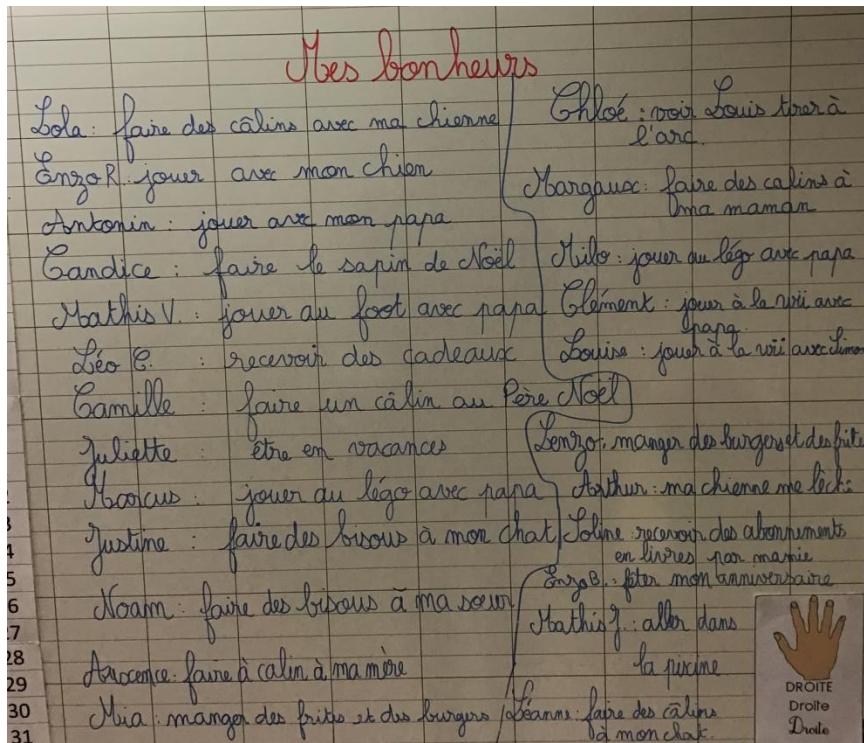 Mes bonheurs
Lola : faire des câlins avec ma chienne
Enzo R. jouer avec mon chien
Antonin : jouer avec mon papa
Candice : faire le sapin de Noël
Mathis V. : jouer au foot avec papa
Léo C. : recevoir des cadeaux
Camille : faire un câlin au Père Noël
Juliette : être en vacances
Marcus : jouer au légo avec papa
Justine : faire des bisous à mon chat
Noam : faire des bisous à ma soeur
faire à calin à ma mère
Mia : manger des frites et des burgers
Chloé : voir Louis tirer à
l'arc.
Margaux : faire des calins à
ma maman
Milo : jouer au légo avec papa
Clément : jouer à la wii avec
papa.
Louise : jouer à la wii avec Simon
Lenzo : manger des burgers et des frite
Arthur : ma chienne me lèche
Soline : recevoir des abonnements
en livres par mamie
Enzo B. : fêter mon anniversaire
Mathis J. : aller dans
la piscine
Léanne : faire des câlins
à mon chat.
5
6
27
28
29
30
31
DROITE
Droite
Droite